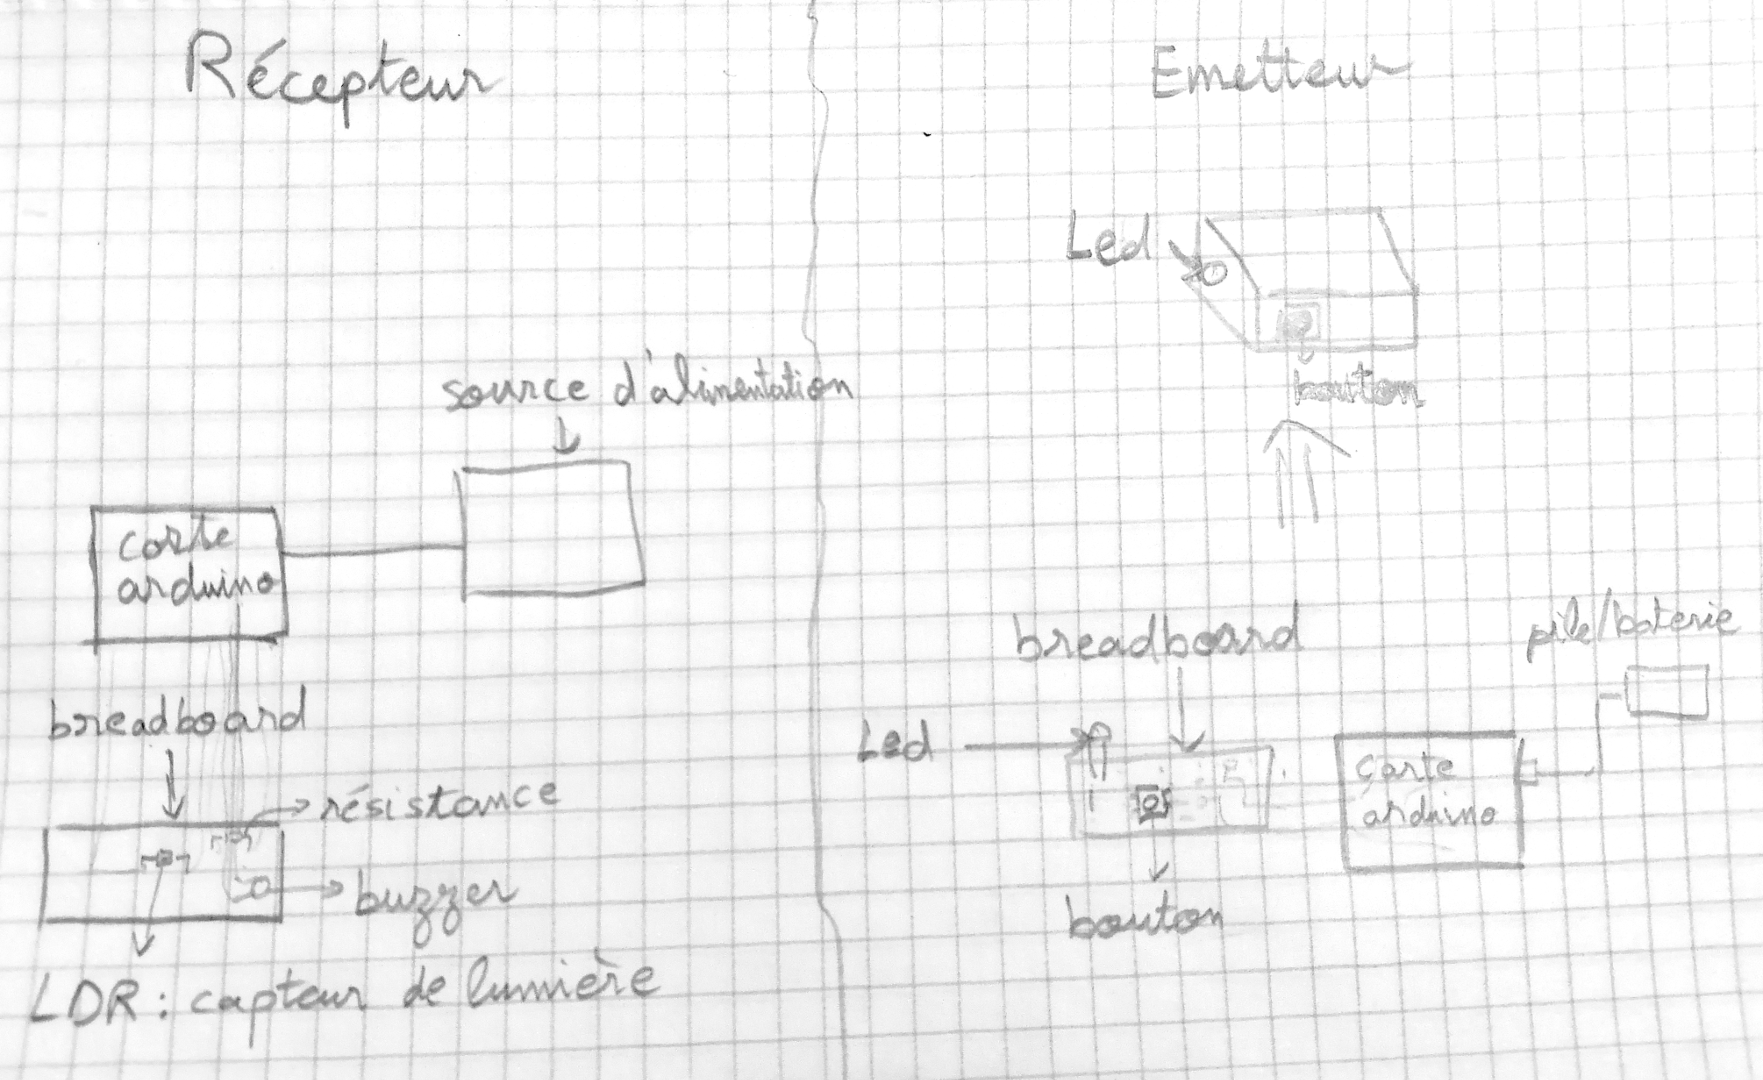 Récepteur
source d'alimentation
carte
arduino
breadboard
résistance
buzzer
LDR : capteur de lumière
Emetteur
Led
bouton
breadboard
pile/baterie
Led
carte
arduino
bouton